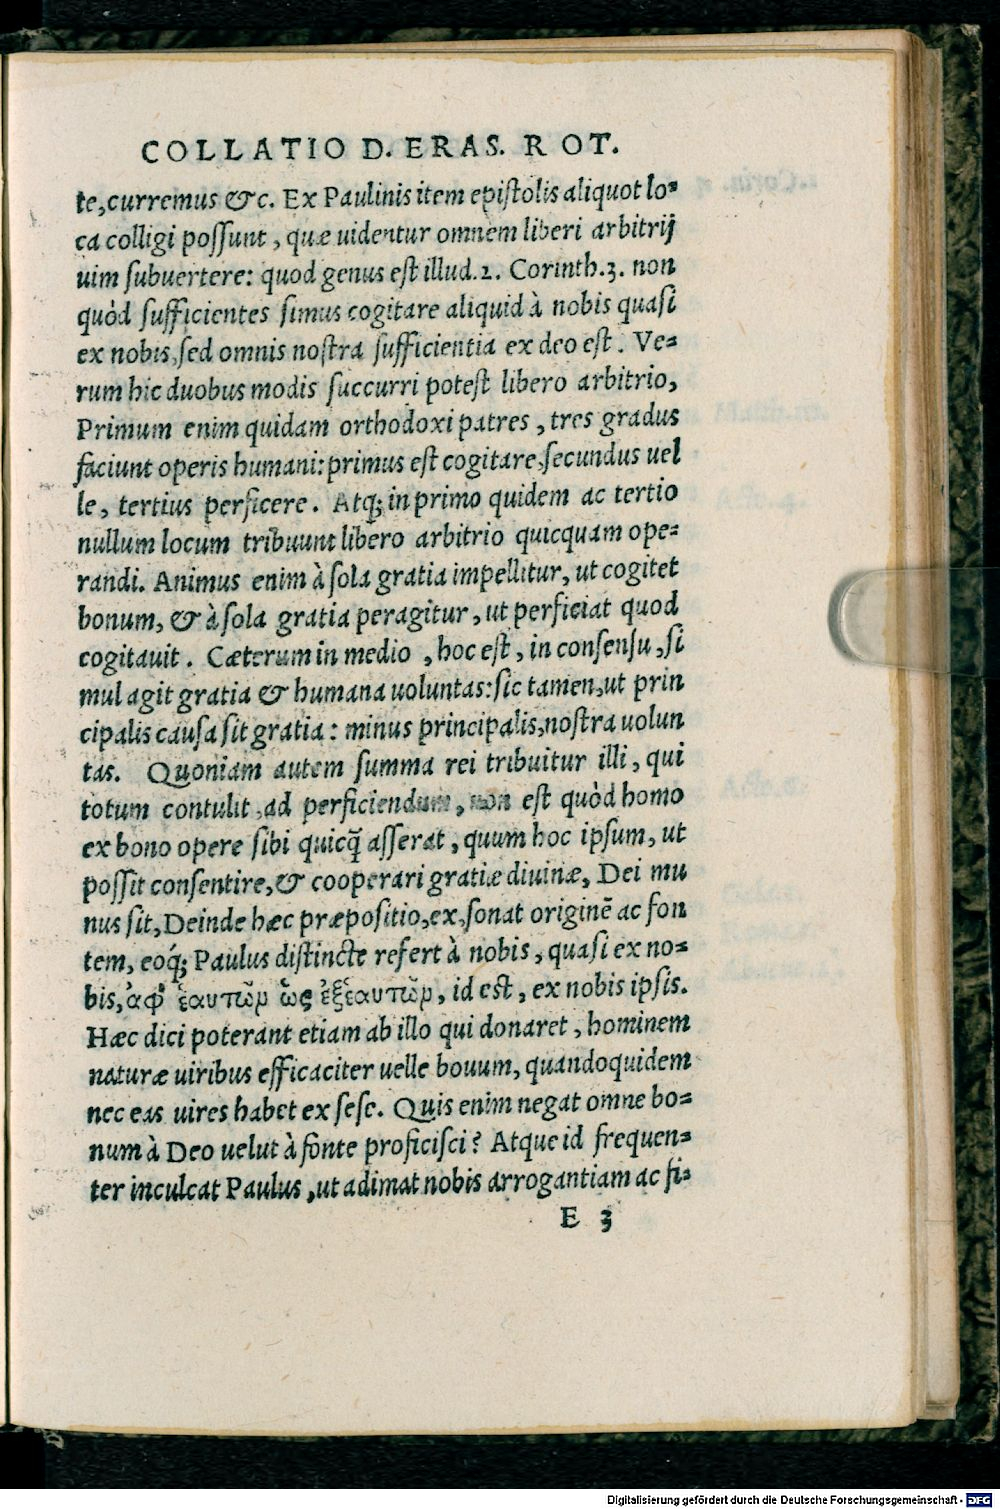 COLLATIO D. ERAS. ROT.
te, curremus &c. Ex Paulinis item epistolis aliquot lo⸗
ca colligi possunt, quæ uidentur omnem liberi arbitrij
uim subuertere: quod genus est illud. 2. Corinth. 3. non
quòd sufficientes simus cogitare aliquid à nobis quasi
ex nobis, sed omnis nostra sufficientia ex deo est. Ve⸗
rum hic duobus modis succurri potest libero arbitrio,
Primum enim quidam orthodoxi patres, tres gradus
faciunt operis humani: primus est cogitare, secundus uel
le, tertius perficere. Atq; in primo quidem ac tertio
nullum locum tribuunt libero arbitrio quicquam ope⸗
randi. Animus enim à sola gratia impellitur, ut cogitet
bonum, & à sola gratia peragitur, ut perficiat quod
cogitauit. Cæterum in medio, hoc est, in consensu, si
mul agit gratia & humana uoluntas: sic tamen, ut prin
cipalis causa sit gratia: minus principalis, nostra uolun
tas. Quoniam autem summa rei tribuitur illi, qui
totum contulit, ad perficiendum, non est quòd homo
ex bono opere sibi quicq̃ asserat, quum hoc ipsum, ut
possit consentire, & cooperari gratiæ diuinæ, Dei mu
nus sit, Deinde hæc præpositio, ex, sonat originẽ ac fon
tem, eoq́; Paulus distincte refert à nobis, quasi ex no⸗
bis, ἀφ' ἑαυτῶν ὡς ἐξ ἑαυτῶν, id est, ex nobis ipsis.
Hæc dici poterant etiam ab illo qui donaret, hominem
naturæ uiribus efficaciter uelle bouum, quandoquidem
nec eas uires habet ex sese. Quis enim negat omne bo⸗
num à Deo uelut à fonte proficisci? Atque id frequen⸗
ter inculcat Paulus, ut adimat nobis arrogantiam ac fi⸗
E 3
Digitalisierung gefördert durch die Deutsche Forschungsgemeinschaft - DFG